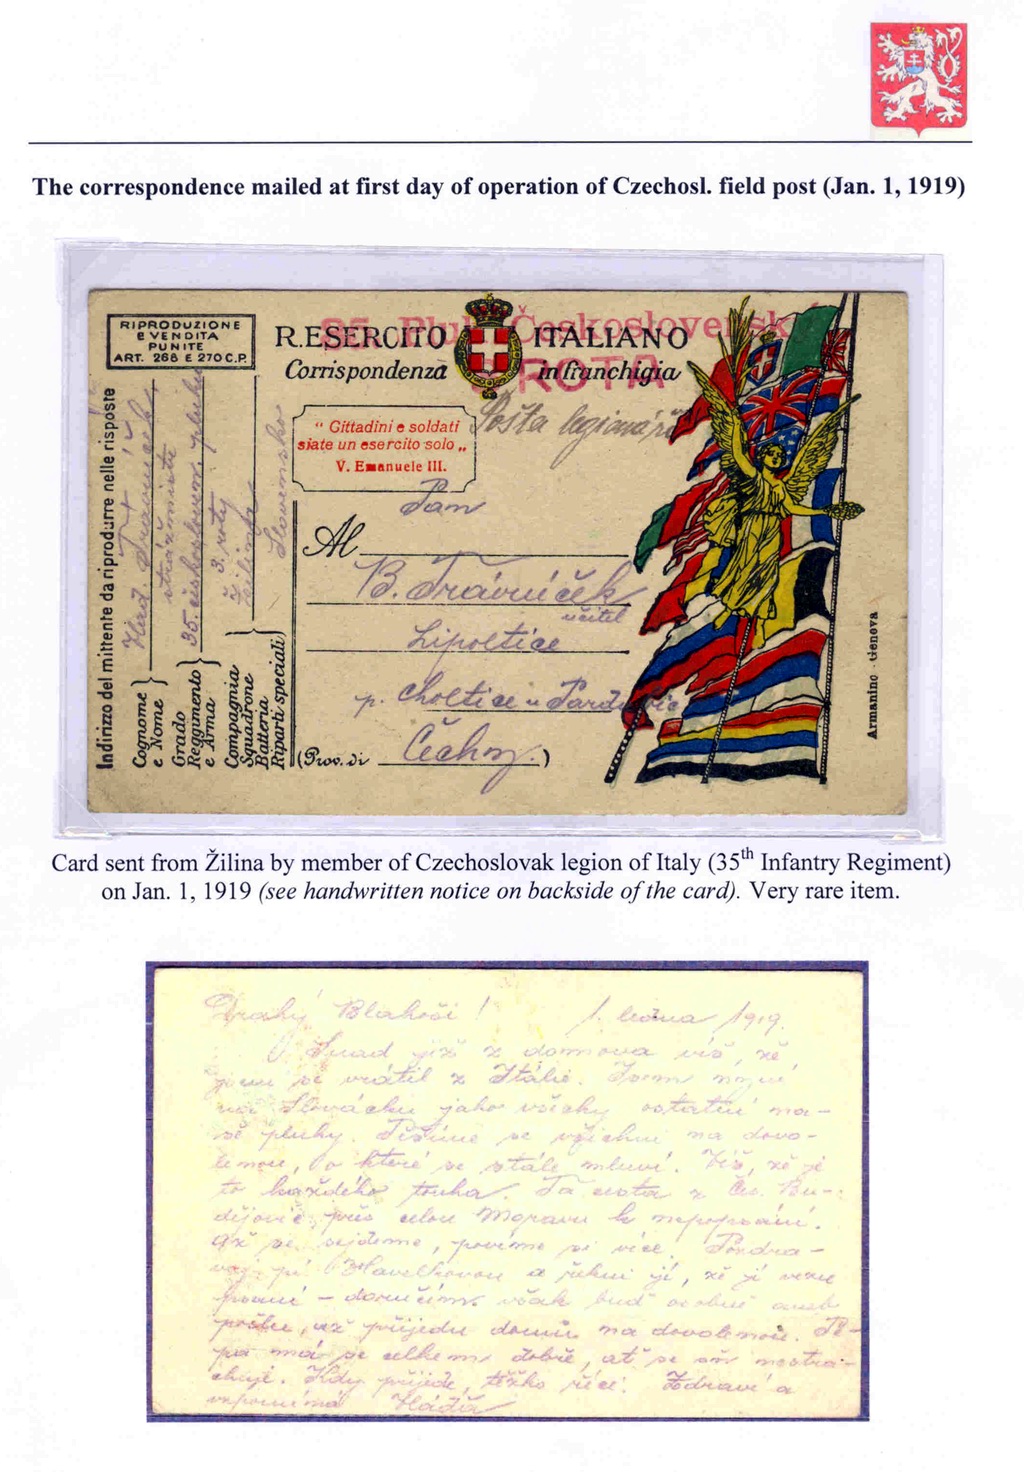 The correspondence mailed at first day of operation of Czechosl. field post (Jan. 1, 1919)
RIPRODUZIONE
e VENDITA
PUNITE
ART. 268 E 270 C.P.
R.ESERCITO ITALIANO
Corrispondenza in franchigia
35. Pluk Československ
ROTA
Pošta legionářů
“ Cittadini e soldati
siate un esercito solo „
V. Emanuele III.
Al
Pan
B. Trávníček
učitel
Lipoltice
p. Choltice u Pardubic
(Prov. di Čechy.)
Indirizzo del mittente da riprodurre nelle risposte
Cognome
e Nome
Grado
Reggimento
e Arma
35. československ. pluku
Compagnia
Squadrone
Batteria
Riparti speciali
3. roty
Žilina
Slovensko
Armanino - Genova
Card sent from Žilina by member of Czechoslovak legion of Italy (35th Infantry Regiment)
on Jan. 1, 1919 (see handwritten notice on backside of the card). Very rare item.
Drahý Blahoši! 1. ledna 1919.
Snad již z domova víš, že
jsem se vrátil z Itálie. Jsem nyní
na Slovácku jako všecky ostatní na-
še pluky. Těšíme se všichni na dovo-
lenou, o které se stále mluví. Víš, že je
to každého touha. Ta cesta z Čes. Bu-
dějovic přes celou Moravu k nepopsání.
Až se sejdeme, povíme si více. Pozdra-
vuj sl. Havelkovou a řekni jí, že jí vezu
psaní - doručím však buď osobně aneb
poštou, až přijedu domů na dovolenou.
má se celkem dobře, ať se on nestra-
chuje. Kdy přijede, těžko říci. Zdraví a
vzpomíná Vláďa